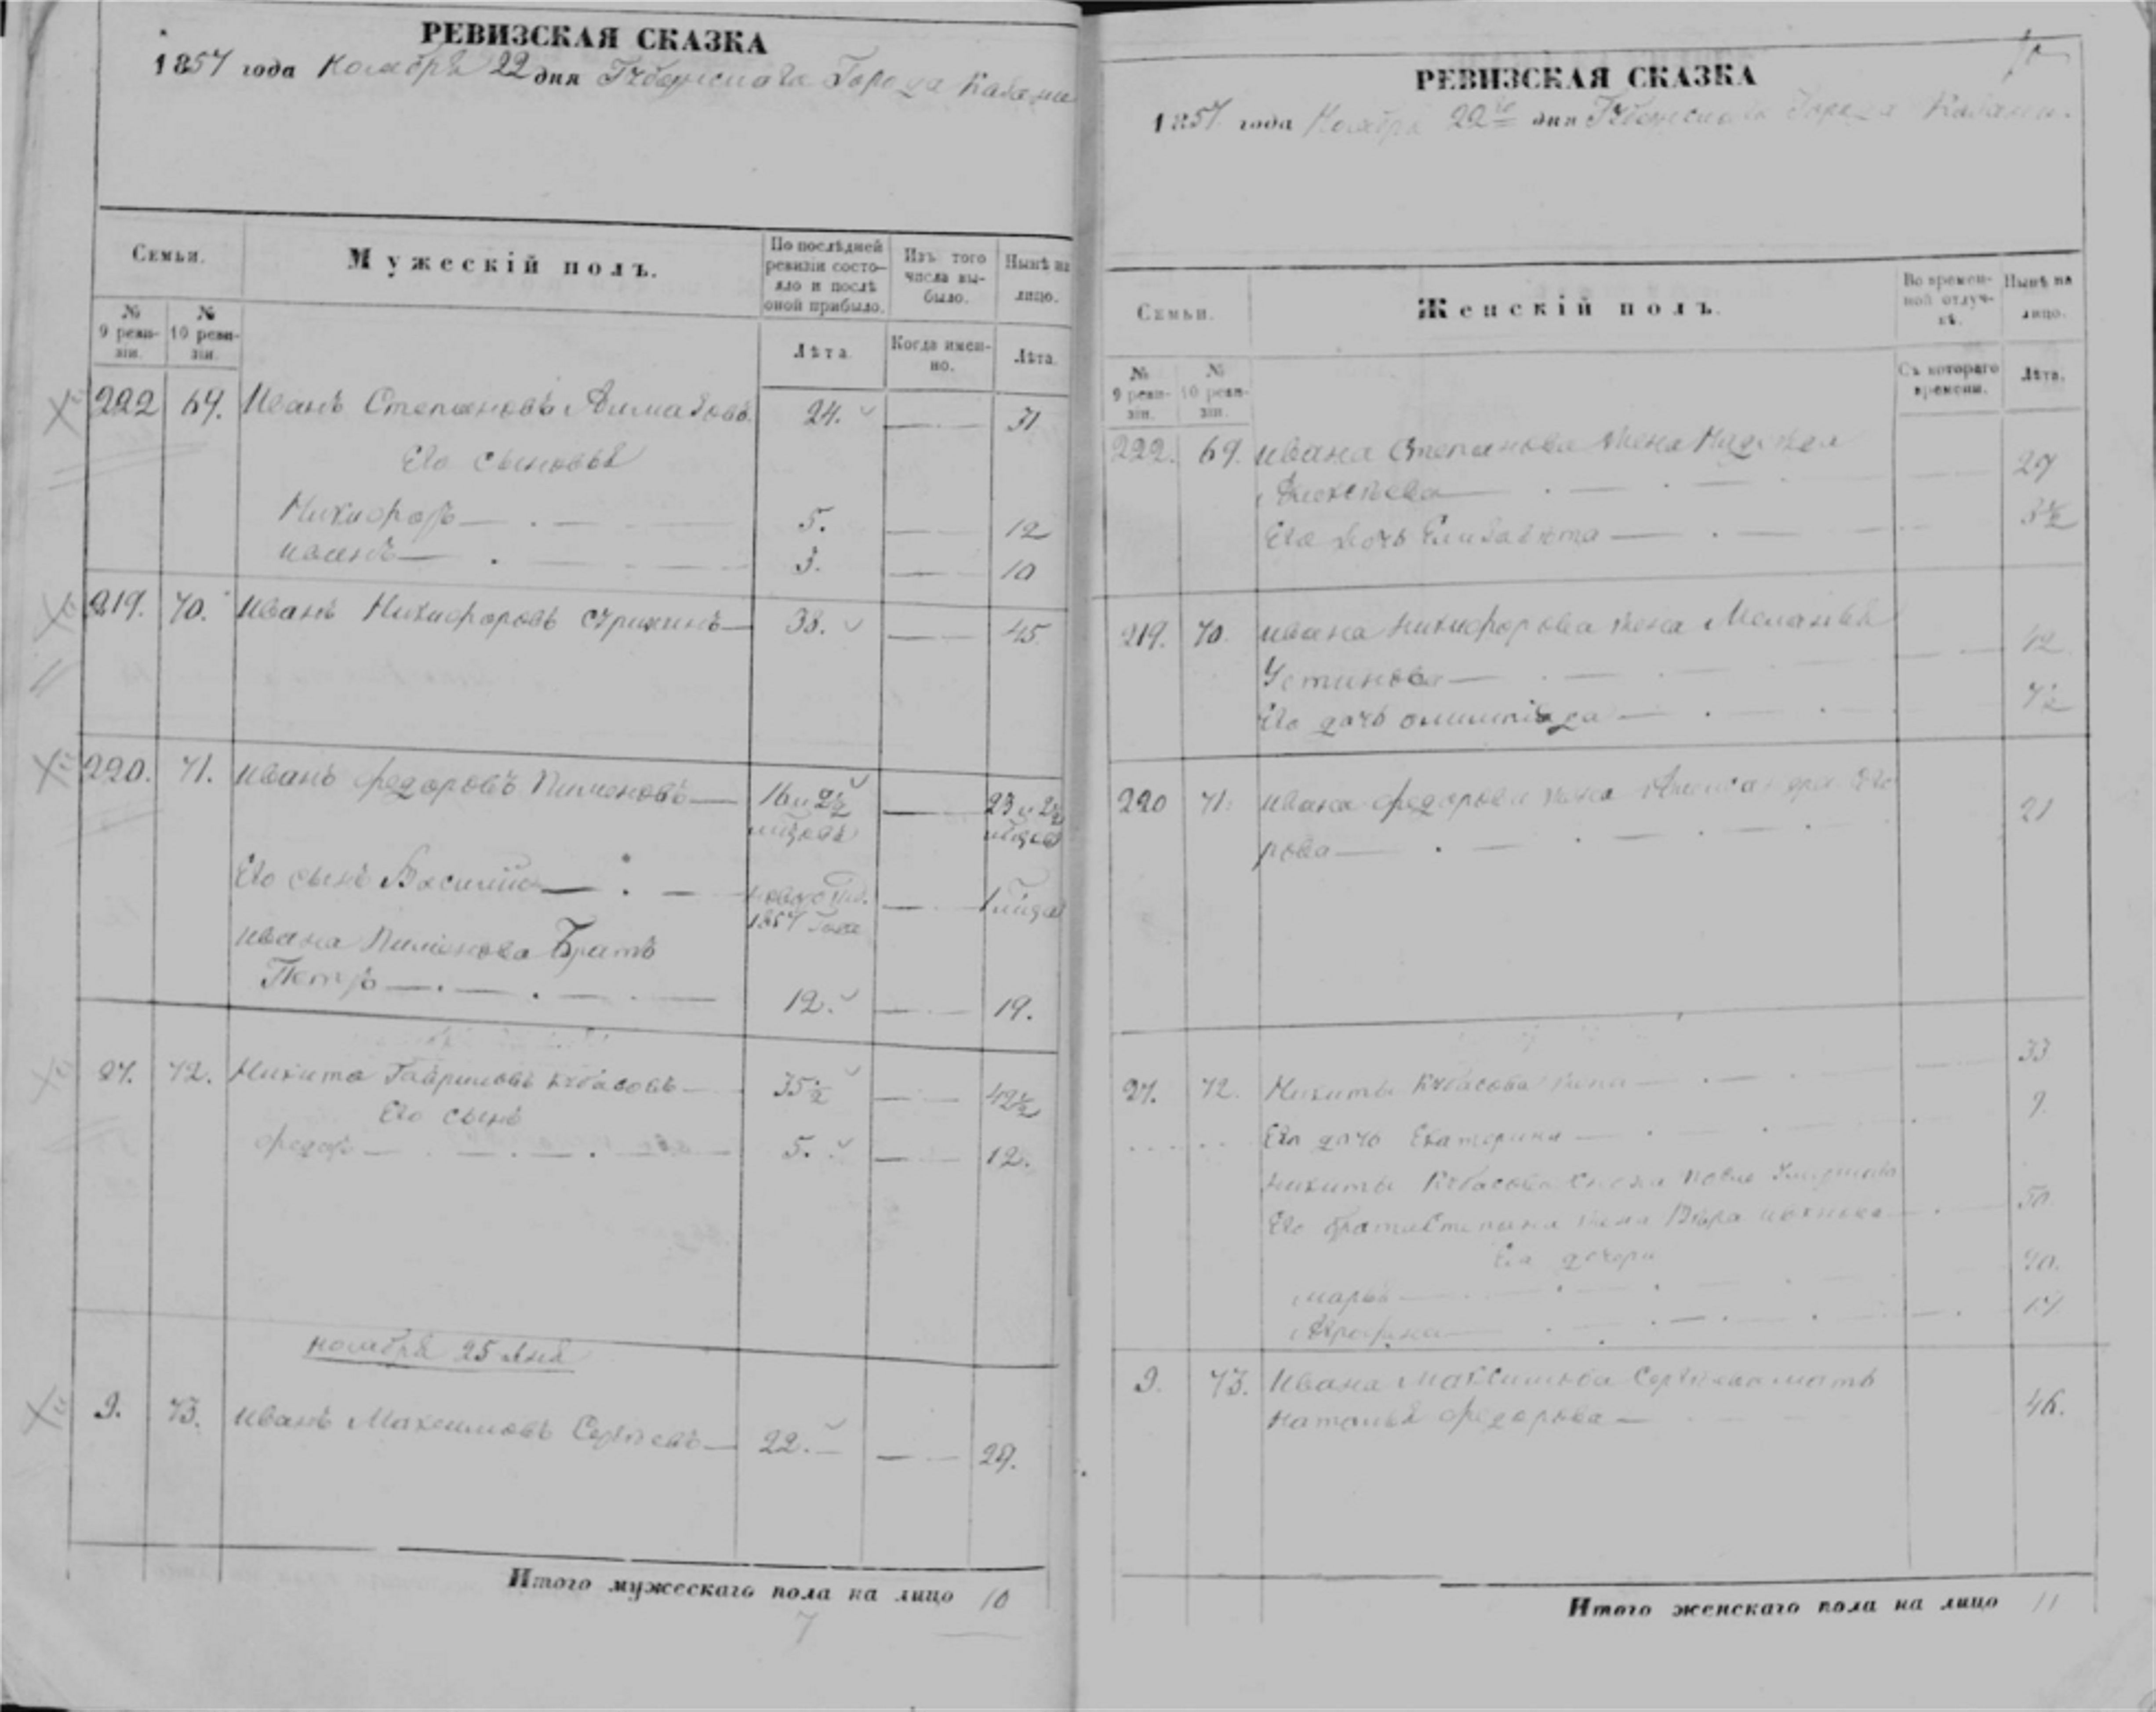 РЕВИЗСКАЯ СКАЗКА
1857 года Ноября 22 дня Губернскаго Города Казани
Семьи.
Мужескій полъ.
По послѣдней ревизіи состояло и послѣ оной прибыло.
Изъ того числа выбыло.
Нынѣ на лицо.
№ 9 ревизіи.
№ 10 ревизіи.
Лѣта.
Когда именно.
Лѣта.
222 69. Иванъ Степановъ 24. 31
Его сыновья
Никифоръ 5. 12
3. 10
219. 70. Иванъ Никифоровъ 38. 45.
220. 71. Иванъ Федоровъ Пименовъ 16 и 2½ 23 и 2½
Его сынъ Василій
1857 года
Ивана Пименова Братъ
Петръ 12. 19.
27. 72. Никита Гавриловъ Кубасовъ 35½ 42½
Его сынъ
Федоръ 5. 12.
Ноября 25 дня
9. 73. Иванъ Максимовъ Сергѣевъ 22. 29.
Итого мужескаго пола на лицо 10
7
РЕВИЗСКАЯ СКАЗКА
1857 года Ноября 22го дня Губернскаго Города Казани.
Семьи.
Женскій полъ.
Во временной отлучкѣ.
Нынѣ на лицо.
№ 9 ревизіи.
№ 10 ревизіи.
Съ котораго времени.
Лѣта.
222. 69. Ивана Степанова жена Надежда
Алексѣева 27
Его дочь Елизавета 3½
219. 70. Ивана Никифорова жена Меланья
Устинова 42
Его дочь 7½
220 71. Ивана Федорова жена Александра Его
рова 21
27. 72. Никиты Кубасова жена 33
Его дочь Екатерина 9.
Никиты Кубасова
Его брата Степана жена 50.
Ея дочери
Марья 20.
Аграфена 17
9. 73. Ивана Максимова Сергѣева мать
Наталья Федорова 46.
Итого женскаго пола на лицо 11